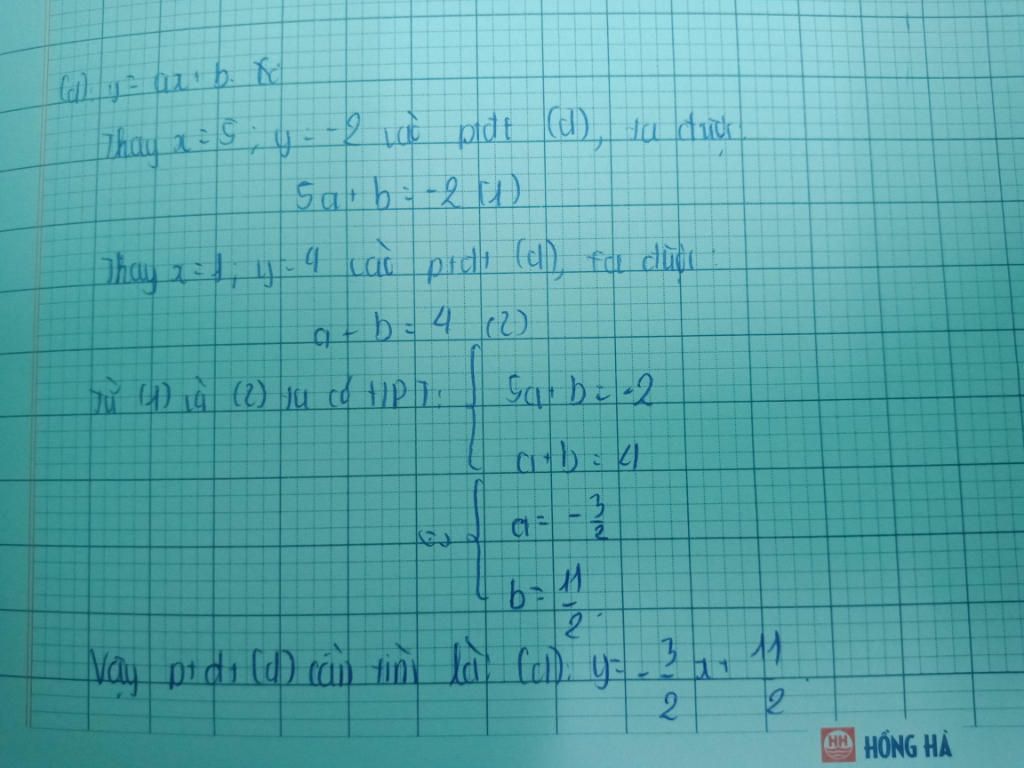 (d): y = ax + b.
Thay x = 5; y = -2 vào ptđt (d), ta được:
5a + b = -2 (1)
Thay x = 1; y = 4 vào ptđt (d), ta được:
a + b = 4 (2)
Từ (1) và (2) ta có HPT: { 5a + b = -2
a + b = 4
<=> { a = -3/2
b = 11/2.
Vậy ptđt (d) cần tìm là: (d): y = -3/2 x + 11/2
HH HỒNG HÀ